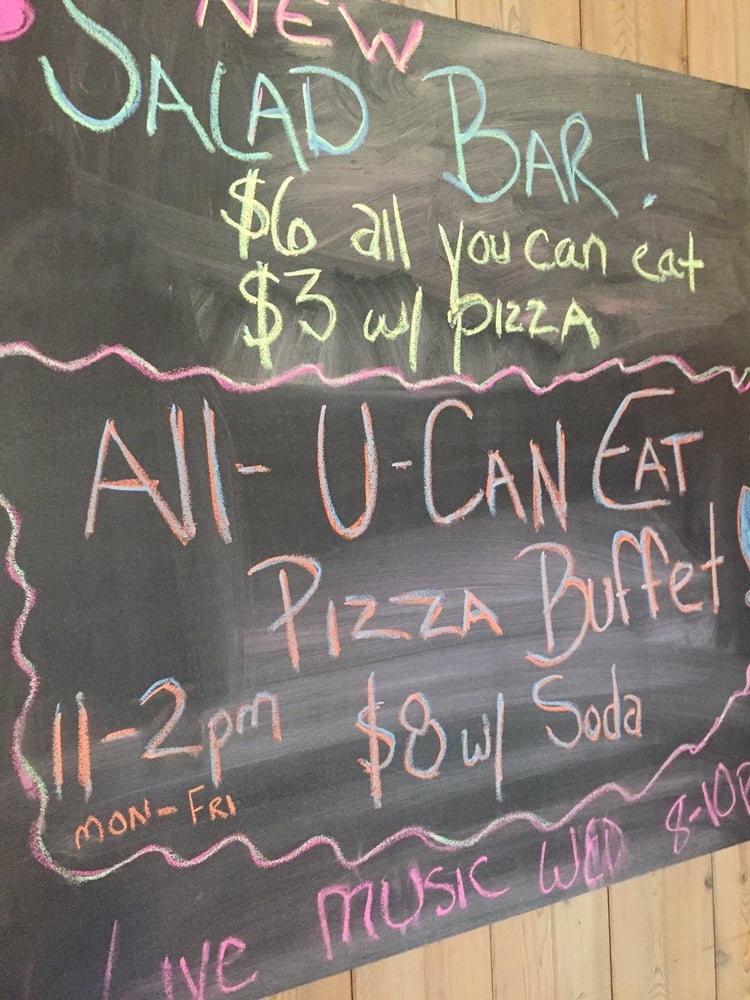 NEW
SALAD BAR!
$6 all you can eat
$3 w/ PIZZA
All-U-CAN EAT
PIZZA Buffet!
11-2pm $8 w/ Soda
MON-FRI
Live MUSIC WED 8-10P